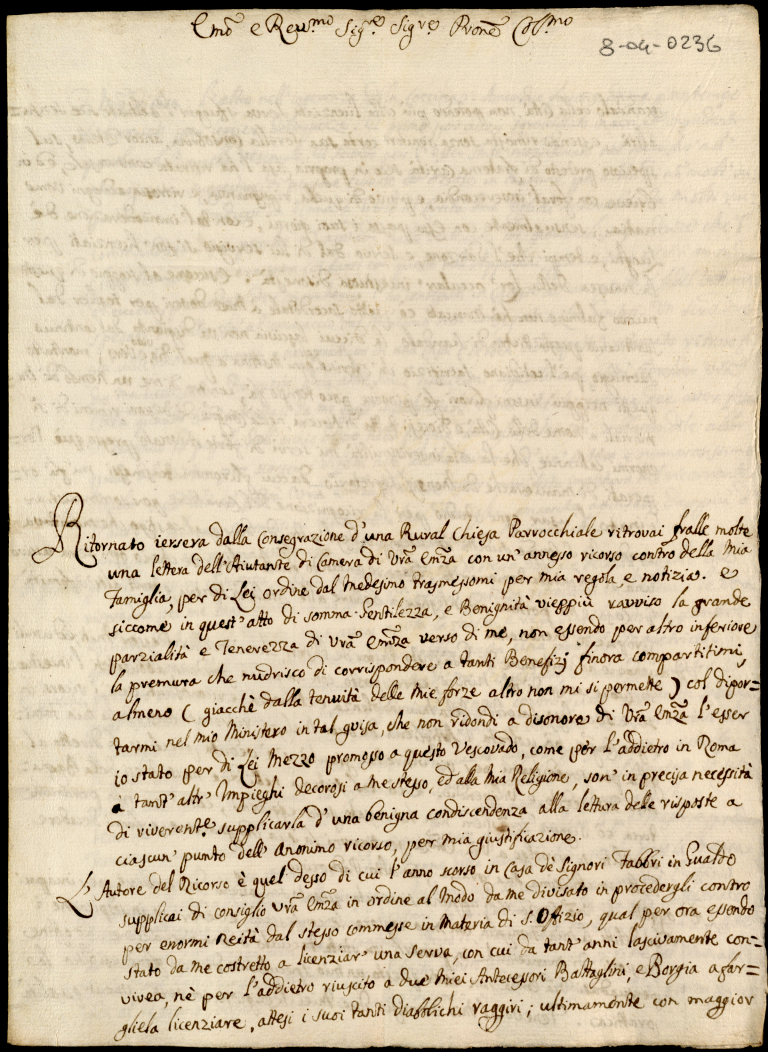 Emõ e Reu.mo Sig.re Sig.re Pronẽ Col.mo
8-04-0236
Ritornato iersera dalla Consegrazione d'una Rural Chiesa Parrocchiale ritrovai fralle molte
una lettera dell'Aiutante di Camera di Vrã Emza con un'annesso ricorso contro della mia
Famiglia, per di Lei ordine dal medesimo trasmessomi per mia regola e notizia. e
siccome in quest'atto di somma Gentilezza, e Benignità vieppiù ravviso la grande
parzialità e Tenerezza di Vrã Emza verso di me, non essendo per altro inferiore
la premura che nudrisco di corrispondere a tanti Benefizj finora compartitimi,
almeno (giacchè dalla tenuità delle mie forze altro non mi si permette) col dipor=
tarmi nel mio Ministero in tal guisa, che non ridondi a disonore di Vrã Emza l'esser
io stato per di Lei Mezzo promosso a questo Vescovado, come per l'addietro in Roma
a tant'altr'Impieghi decorosi a me stesso, ed alla mia Religione, son'in precisa necessità
di viverent.e supplicarla d'una benigna condiscendenza alla lettura delle risposte a
ciascun'punto dell'anonimo ricorso, per mia giustificazione.
L'Autore del Ricorso è quel desso di cui l'anno scorso in Casa dè Signori Fabbri in Gualdo
supplicai di consiglio Vrã Emza in ordine al modo da me divisato in procedergli contro
per enormi Reità dal stesso commesse in Materia di S. Ofizio, qual per ora essendo
stato da me costretto a licenziar'una serva, con cui da tant'anni lascivamente con=
vivea, nè per l'addietro riuscito a due miei Antecessori Battaglini, e Borgia a far=
gliela licenziare, attesi i suoi tanti diabolichi raggiri; ultimamente con maggior